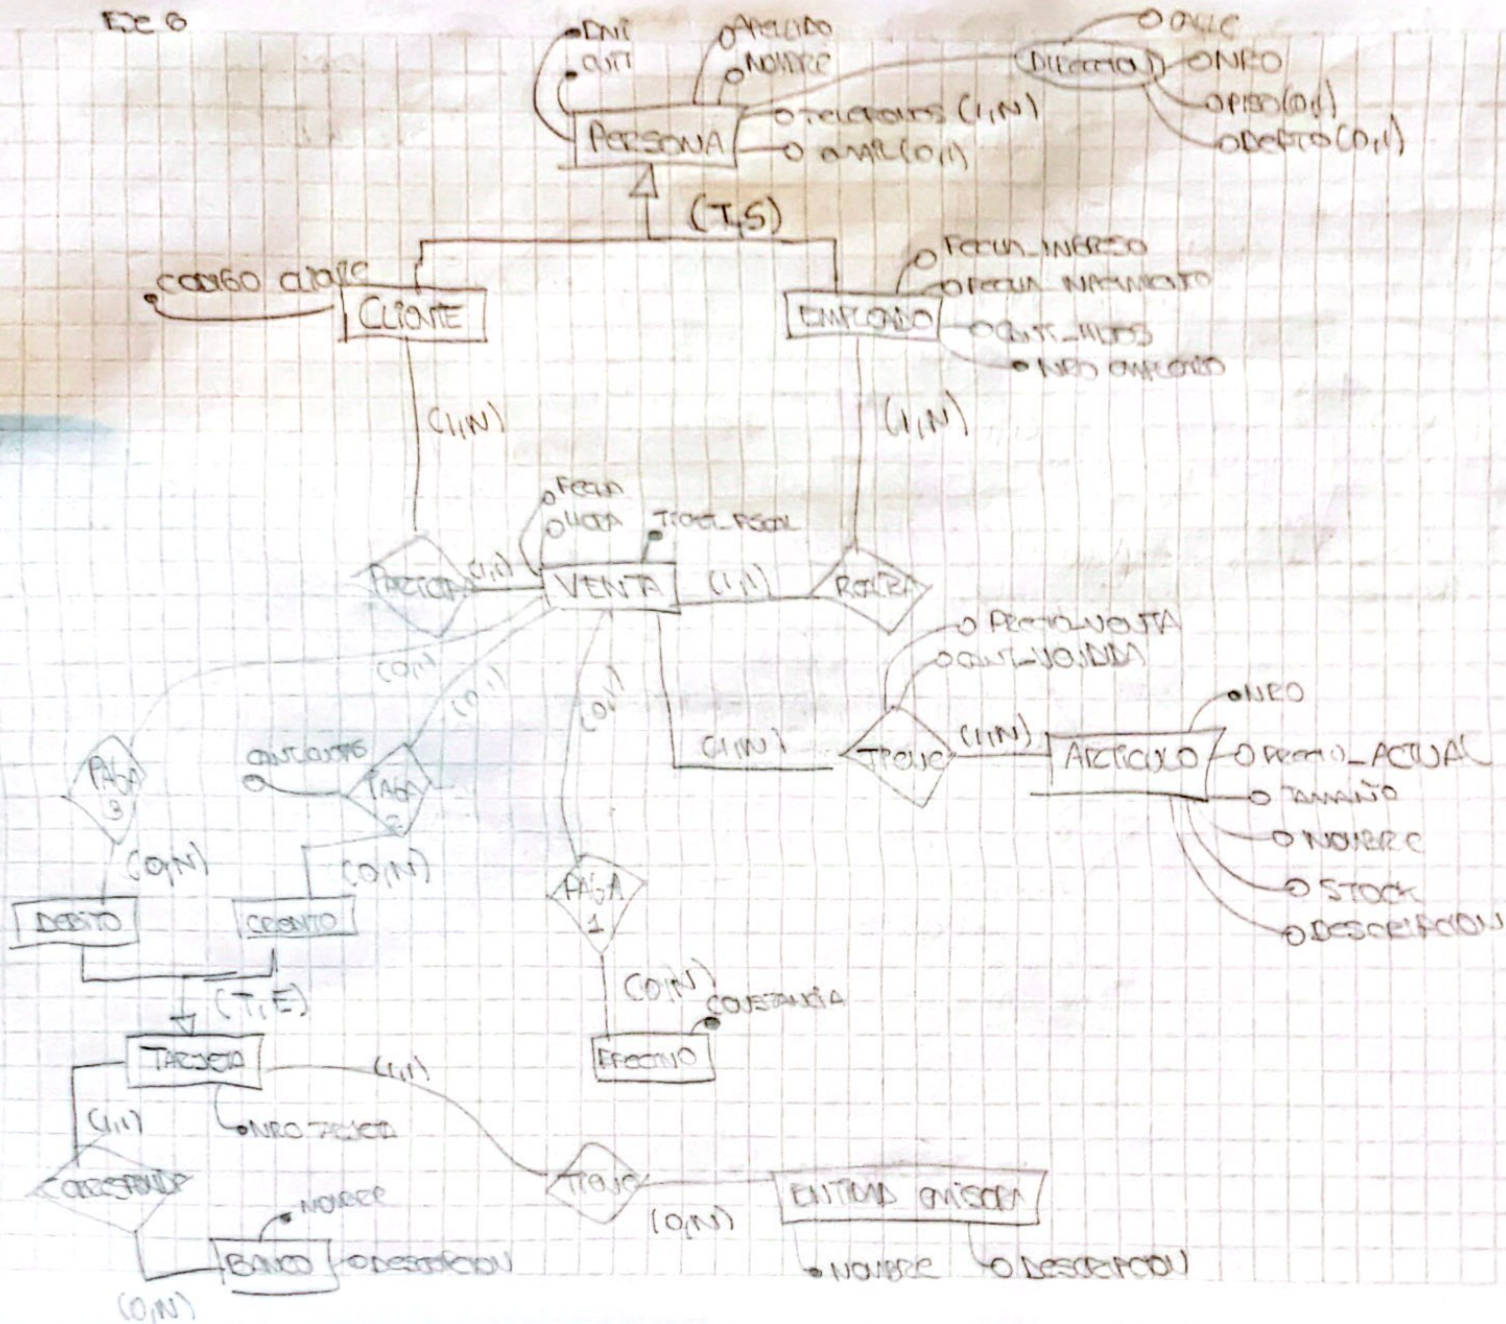 EJE 6
DNI
CUIT
APELLIDO
NOMBRE
DIRECCION
CALLE
NRO
PISO(0,1)
DEPTO(0,1)
PERSONA
TELEFONOS (1,N)
EMAIL(0,1)
(T,S)
CODIGO CLIENTE
CLIENTE
EMPLEADO
FECHA_INGRESO
FECHA_NACIMIENTO
CANT_HIJOS
NRO EMPLEADO
(1,N)
(1,N)
FECHA
HORA
TICKET_FISCAL
(1,1)
VENTA
(1,1)
(0,1)
(0,1)
(0,1)
PRECIO_VENTA
CANT_VENDIDA
(1,N)
TIENE
(1,N)
ARTICULO
NRO
PRECIO_ACTUAL
TAMAÑO
NOMBRE
STOCK
DESCRIPCION
PAGA
3
CANT_CUOTAS
PAGA
2
(0,N)
(0,N)
PAGA
1
DEBITO
CREDITO
(T,E)
(0,N)
CONSTANCIA
EFECTIVO
TARJETA
(1,1)
(1,1)
NRO TARJETA
CORRESPONDE
TIENE
(0,N)
ENTIDAD EMISORA
NOMBRE
DESCRIPCION
NOMBRE
BANCO
DESCRIPCION
(0,N)